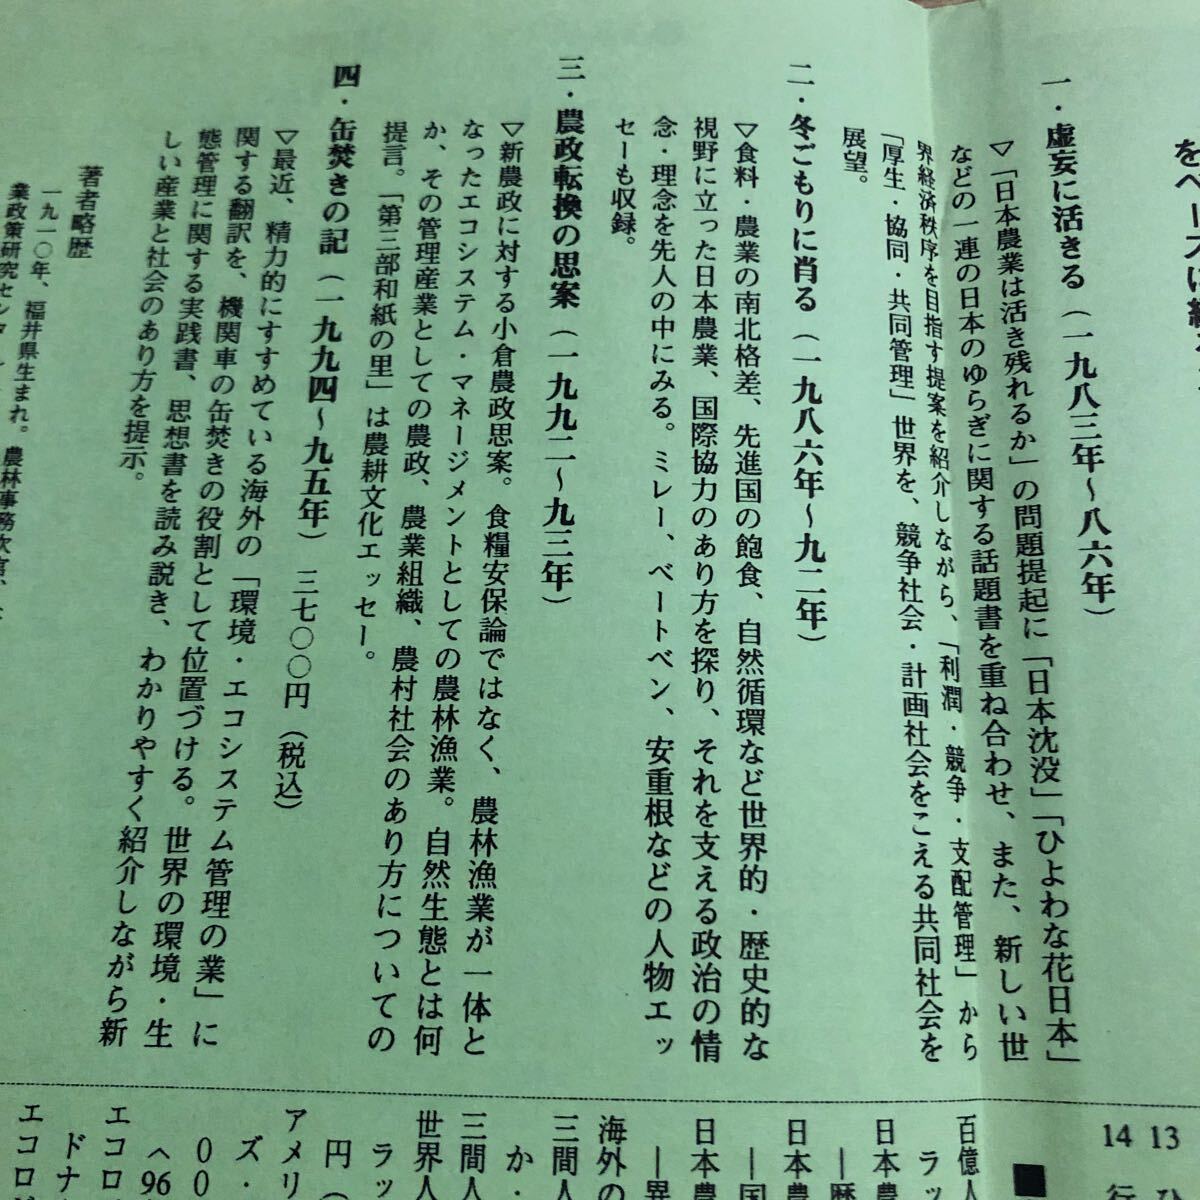 一・虚妄に活きる（一九八三年～八六年）
▽「日本農業は活き残れるか」の問題提起に「日本沈没」「ひよわな花日本」
などの一連の日本のゆらぎに関する話題書を重ね合わせ、また、新しい世
界経済秩序を目指す提案を紹介しながら、「利潤・競争・支配管理」から
「厚生・協同・共同管理」世界を、競争社会・計画社会をこえる共同社会を
展望。
二・冬ごもりに肖る（一九八六年～九二年）
▽食料・農業の南北格差、先進国の飽食、自然循環など世界的・歴史的な
視野に立った日本農業、国際協力のあり方を探り、それを支える政治の情
念・理念を先人の中にみる。ミレー、ベートベン、安重根などの人物エッ
セーも収録。
三・農政転換の思案（一九九二～九三年）
▽新農政に対する小倉農政思案。食糧安保論ではなく、農林漁業が一体と
なったエコシステム・マネージメントとしての農林漁業。自然生態とは何
か、その管理産業としての農政、農業組織、農村社会のあり方についての
提言。「第三部和紙の里」は農耕文化エッセー。
四・缶焚きの記（一九九四～九五年）三七〇〇円（税込）
▽最近、精力的にすすめている海外の「環境・エコシステム管理の業」に
関する翻訳を、機関車の缶焚きの役割として位置づける。世界の環境・生
態管理に関する実践書、思想書を読み説き、わかりやすく紹介しながら新
しい産業と社会のあり方を提示。
著者略歴
一九一〇年、福井県生まれ。農林事務次官、
業政策研究センター
14 13
百億人
ラッ
日本農
―歴
日本農
―国
日本農
―異
海外の
三間人
か・
三間人
世界人
ラッ
円（
アメリ
ズ・
00
〈96
エコロ
ドナ
エコロジ